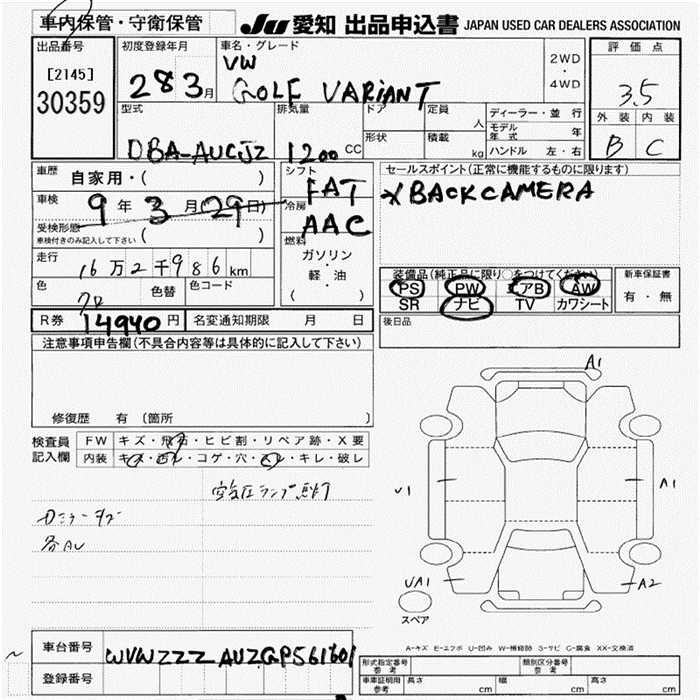 車内保管・守衛保管
JU 愛知 出品申込書 JAPAN USED CAR DEALERS ASSOCIATION
出品番号
[2145]
30359
初度登録年月
28 3月
車名・グレード
VW
GOLF VARIANT
2WD
・
4WD
評価点
3.5
外装 内装
B C
型式
DBA-AUCJZ
排気量
1200 CC
ドア
形状
定員
人
積載
kg
ディーラー・並行
モデル年式 年
ハンドル 左・右
車歴
自家用・( )
車検
9年 3月 (29日)
受検形態
車検付きのみ記入して下さい ( )
走行
16万2千986km
色
クロ
色替
色コード
シフト
FAT
冷房
AAC
燃料
ガソリン
・
軽・油
( )
セールスポイント(正常に機能するものに限ります)
BACK CAMERA
装備品(純正品に限り○をつけてください)
PS PW エアB AW
SR ナビ TV カワシート
新車保証書
有・無
R券 14940円 名変通知期限 月 日
後日品
注意事項申告欄(不具合内容等は具体的に記入して下さい)
修復歴 有 〔箇所 〕
検査員
記入欄
FW キズ・飛石・ヒビ割・リペア跡・X要
内装 キズ・汚レ・コゲ・穴・スレ・キレ・破レ
空気圧ランプ点灯
各AU
A1
U1
A1
UA1
A2
スペア
A-キズ E-エクボ U-凹み W-補修跡 S-サビ C-腐食 XX-交換済
車台番号
WVWZZZAUZGP561601
登録番号
形式指定番号
参考
類別区分番号
参考
車車証明用
参考
長さ cm 幅 cm 高さ cm